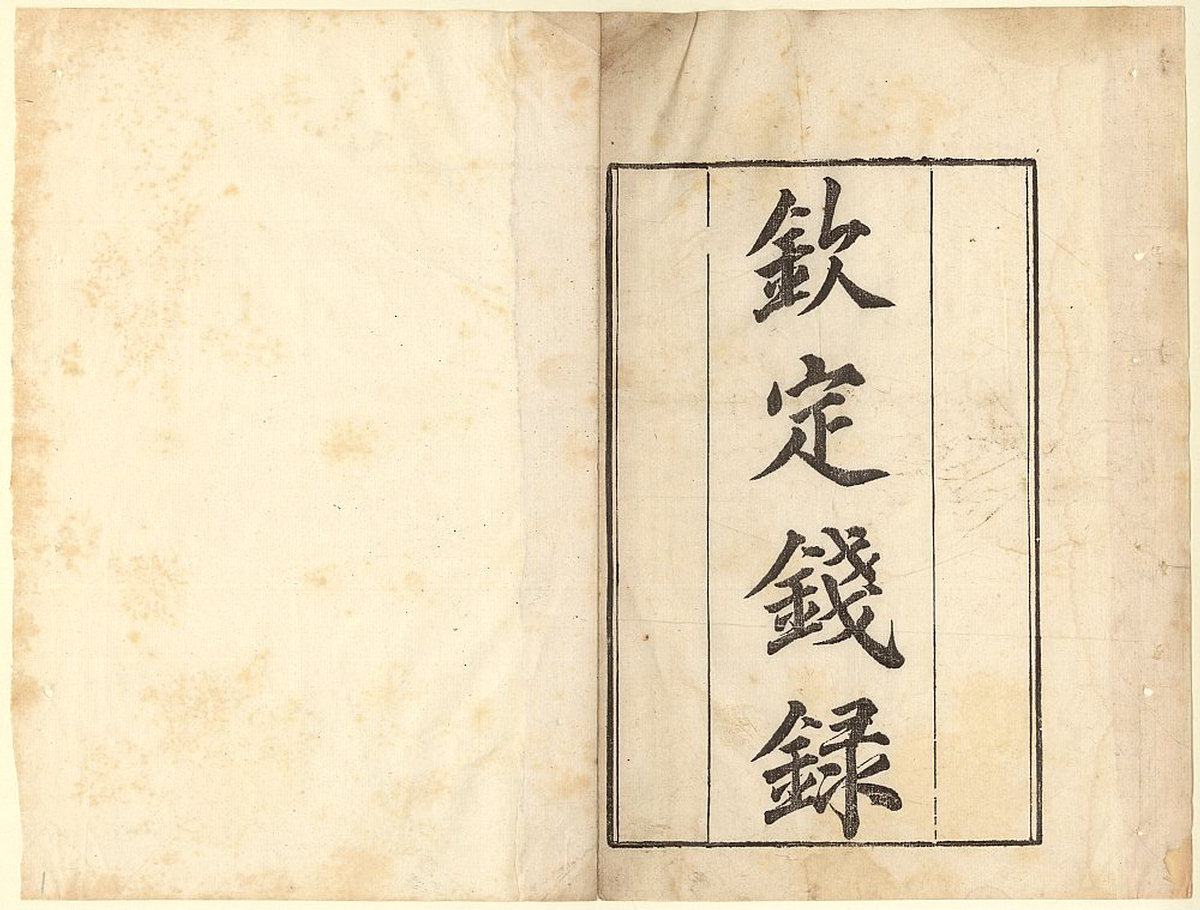 欽定錢録